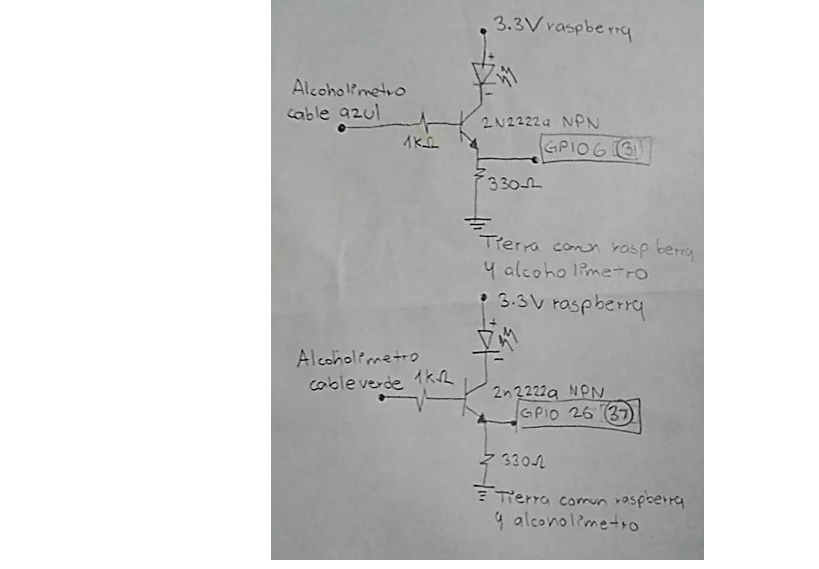 3.3V raspberry
+
Alcoholímetro
cable azul
-
2N2222a NPN
1kΩ
GPIO 6 (31)
330Ω
Tierra comun raspberry
y alcoholimetro
3.3V raspberry
+
Alcoholímetro
cable verde
1kΩ
-
2n2222a NPN
GPIO 26 (37)
330Ω
Tierra comun raspberry
y alcoholimetro